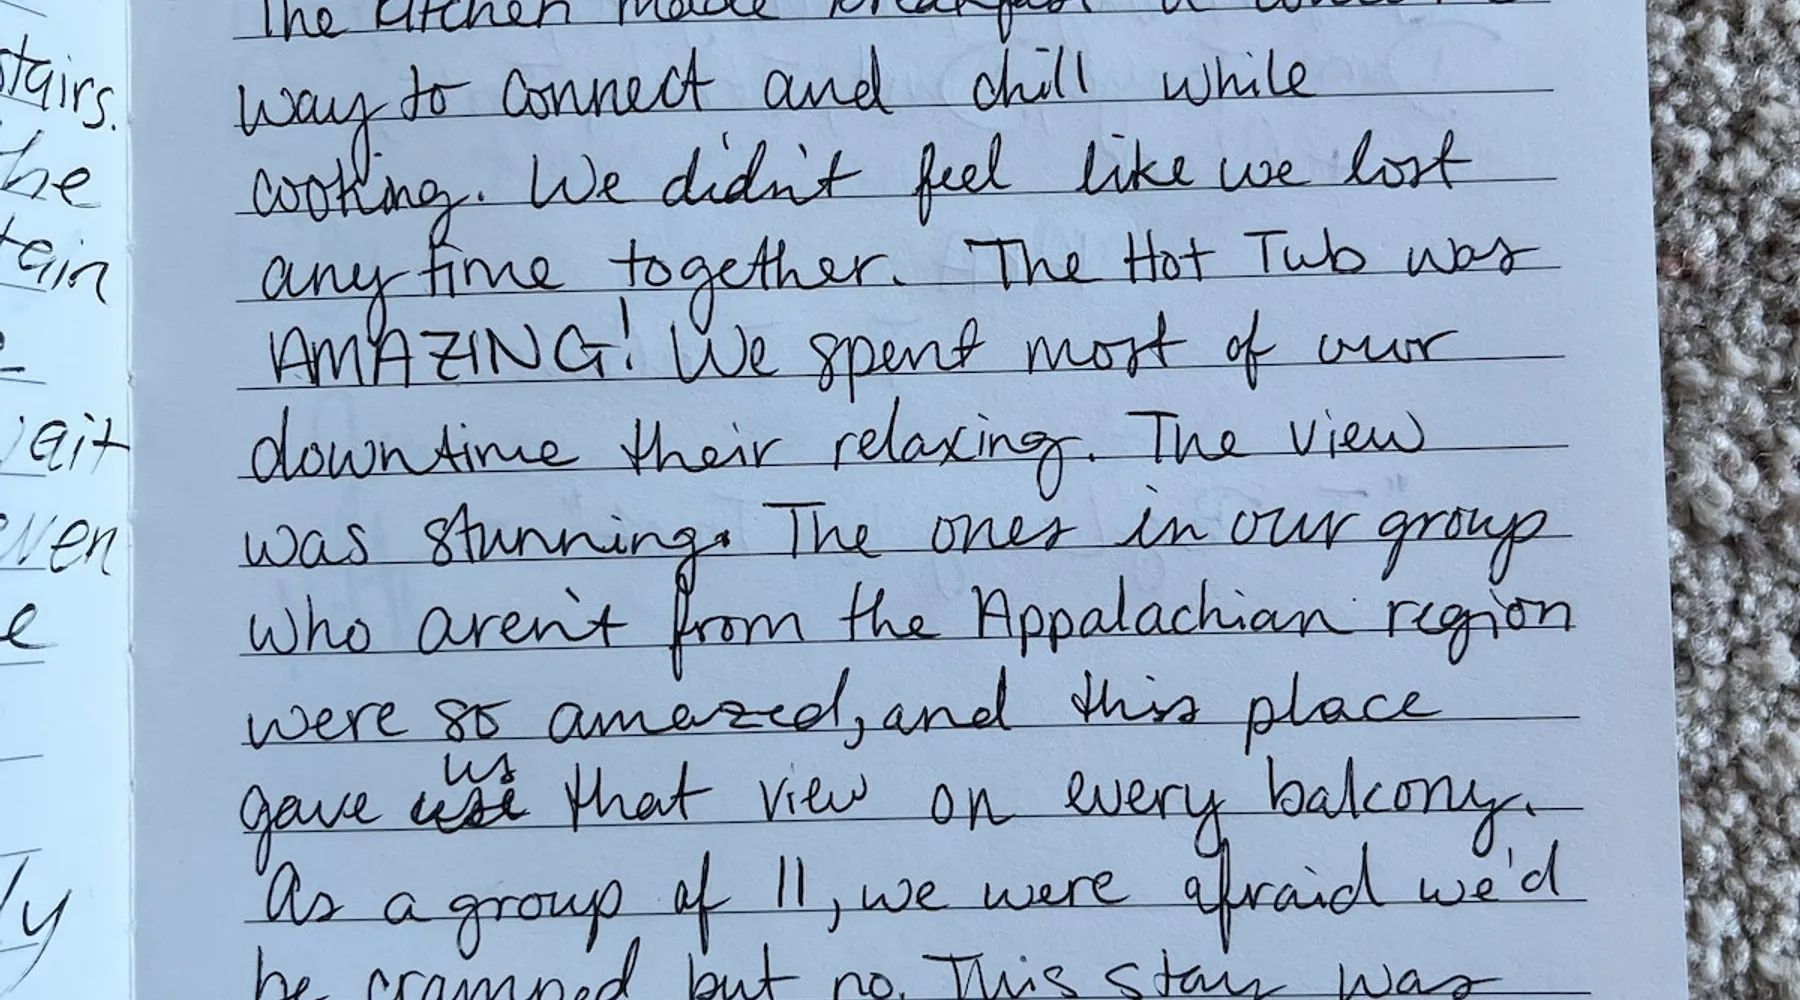 stairs.
he
tain
ait
ven
e
ly
The kitchen made breakfast a
way to connect and chill while
cooking. We didn't feel like we lost
any time together. The Hot Tub was
AMAZING! We spent most of our
downtime their relaxing. The view
was stunning. The ones in our group
who aren't from the Appalachian region
were so amazed, and this place
gave us that view on every balcony.
As a group of 11, we were afraid we'd
be cramped but no. This stay was